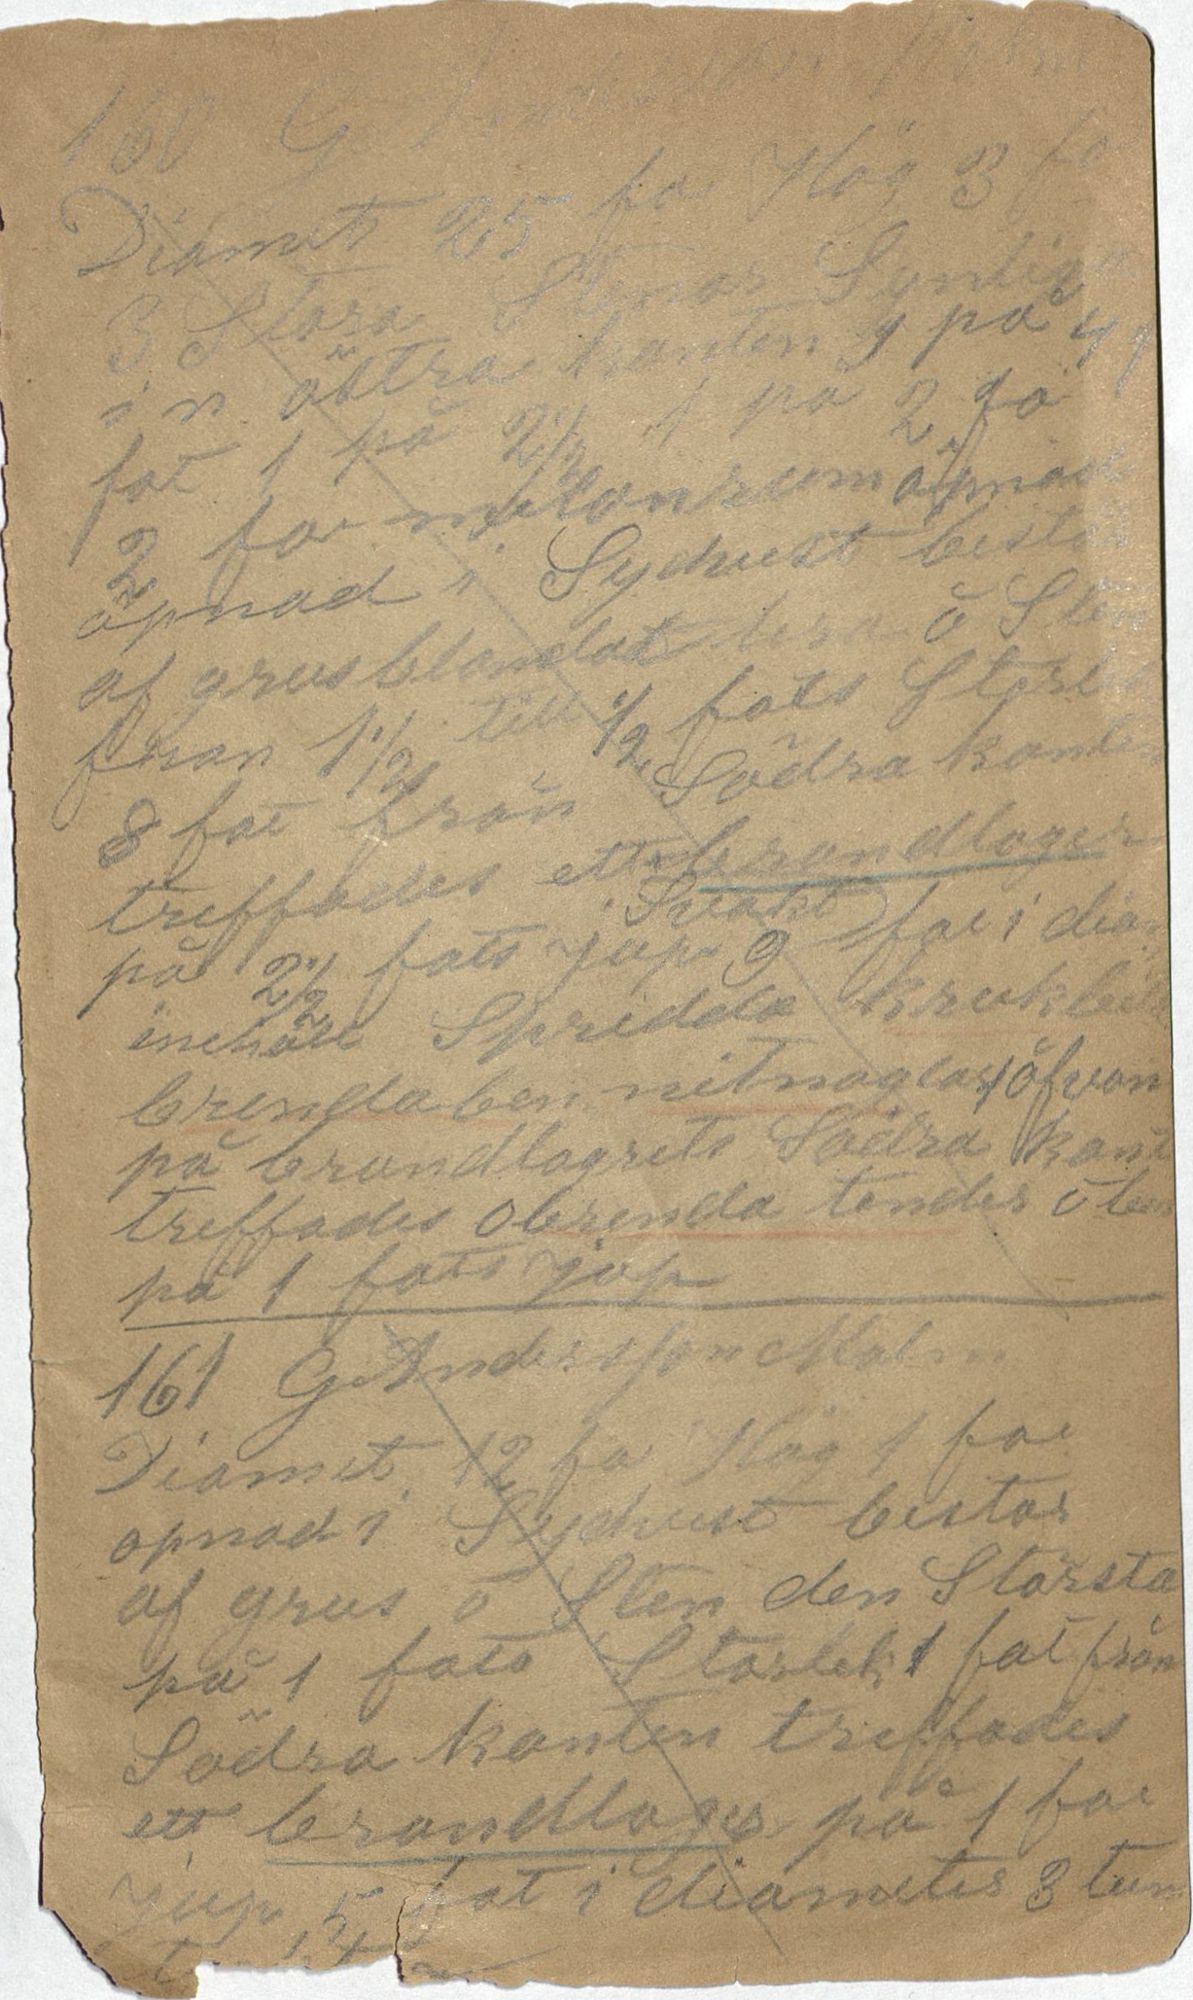 160 G Andersson Malm
Diamet 25 fot Hög 3 fo
3 Stora Stenar Synliga
i n östra kanten 1 på 4
fot 1 på 2 1/2 1 på 2 fo
2 fot melanrum öpnad
öpnad i Sydvest bestå
af grusblandat bra ö Sten
fron 1 1/2 till 1/2 fots Storlek
8 fot från Södra kanten
treffades ett brandlager
Svakt
på 2 1/2 fots jup 9 fot i diam
inehöll Spridda krukbit
brenda ben nitnaglar öfvan
på brandlagrets Södra kant
treffades obrenda tender ö ben
på 1 fots jup
161 G Andersson Malm
Diamet 12 fo Hög 1 fot
opnad i Sydvest bestor
af grus ö Sten den Storsta
på 1 fots Storlek 1 fot från
Södra kanten treffades
ett brandlager på 1 fot
jup 5 fot i diameter 3 tum